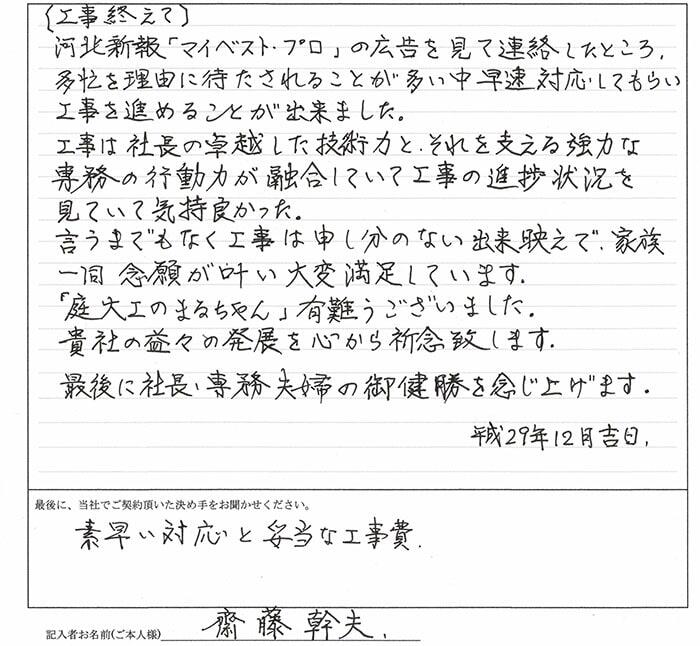 〔工事終えて〕
河北新報「マイベスト・プロ」の広告を見て連絡したところ、
多忙を理由に待たされることが多い中早速対応してもらい
工事を進めることが出来ました。
工事は社長の卓越した技術力と、それを支える強力な
専務の行動力が融合していて工事の進捗状況を
見ていて気持良かった。
言うまでもなく工事は申し分のない出来映えで、家族
一同念願が叶い大変満足しています。
「庭大工のまるちゃん」有難うございました。
貴社の益々の発展を心から祈念致します。
最後に社長、専務夫婦の御健勝を念じ上げます。
平成29年12月吉日、
最後に、当社でご契約頂いた決め手をお聞かせください。
素早い対応と妥当な工事費.
記入者お名前(ご本人様) 齋藤幹夫.